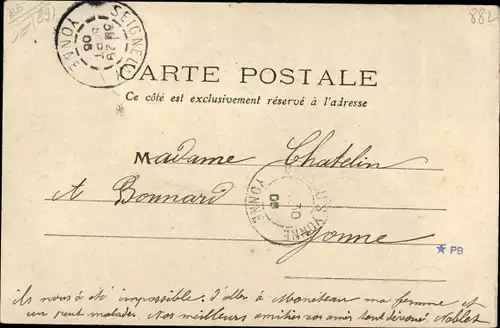 (89)
882
SEIGNELAY
YONNE
29
SEPT
05
CARTE POSTALE
Ce côté est exclusivement réservé à l'adresse
Madame Chatelin
A Bonnard
YONNE
30
05
S/YONNE
Yonne
PB
ils nous à été impossible d'aller à Monéteau ma femme est
un peut malades. Nos meilleurs amitiés vos amis tout dévoué Noblet